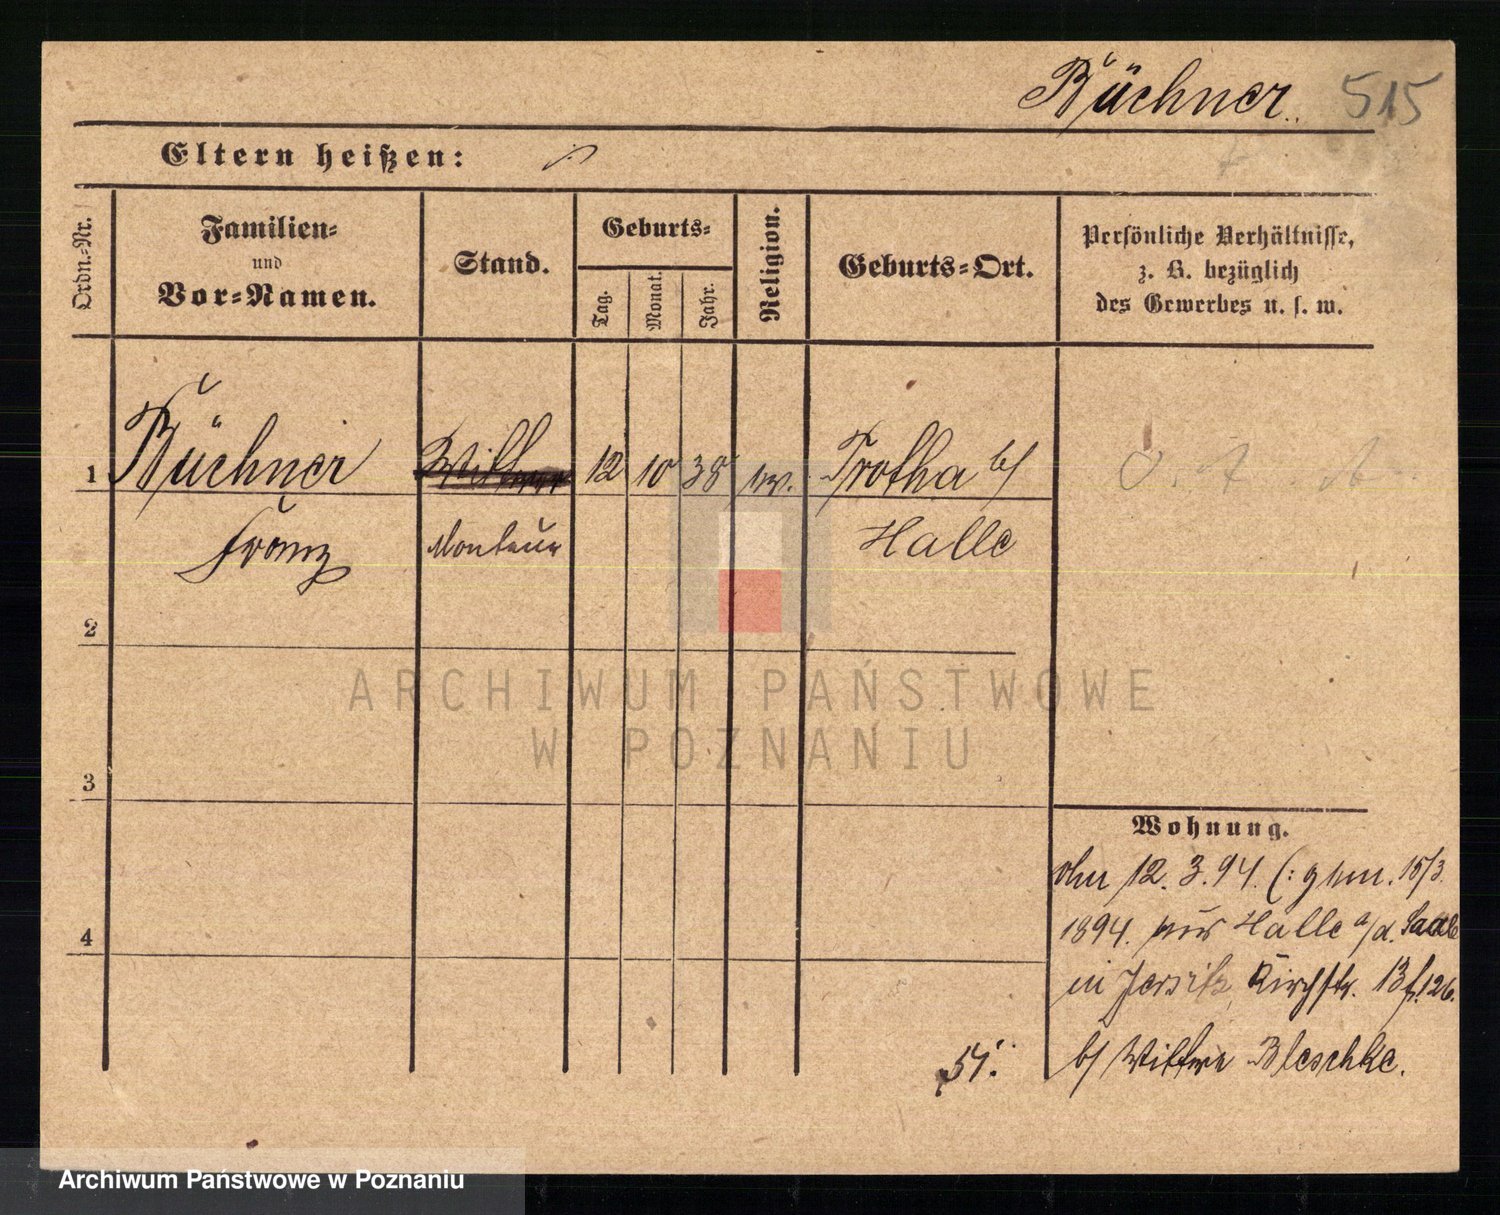 Büchner. 515
Eltern heißen:
Ordn.-Nr.
Familien-
und
Vor-Namen.
Stand.
Geburts-
Tag.
Monat.
Jahr.
Religion.
Geburts-Ort.
Persönliche Verhältnisse,
z. B. bezüglich
des Gewerbes u. s. w.
1 Büchner 12 10 38 ev. Trotha b/
Franz Monteur Halle
2
3
4
Wohnung.
12. 3. 94. (: gem. 15/3
1894. aus Halle a/d. Saale
in Jersitz, Kirchstr. 126.
b/ Wittwe Bleschke.
54.
ARCHIWUM PAŃSTWOWE
W POZNANIU
Archiwum Państwowe w Poznaniu